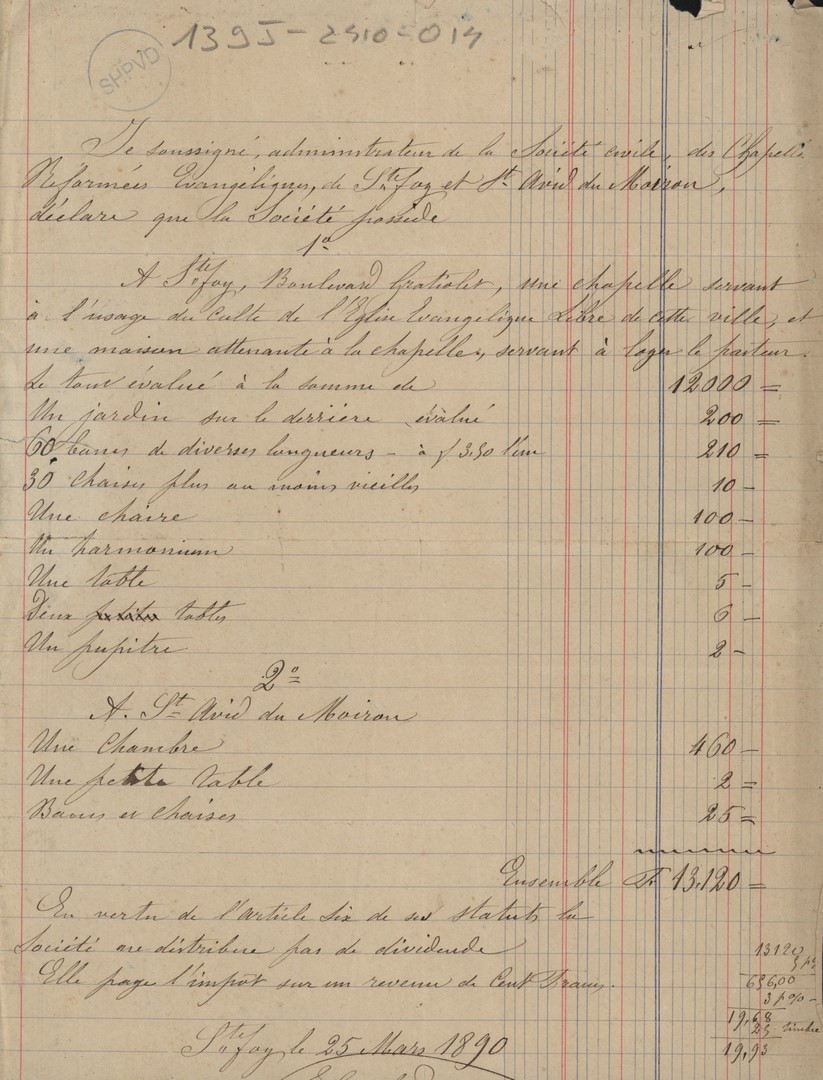 139J-2410-014
SHPVD
Je soussigné, administrateur de la Société civile, des Chapelles
Réformées Evangéliques, de Ste foy et St Avid du Moiron,
déclare que la Société possède
1o
A Ste foy, Boulevard Gratiolet, une chapelle servant
à l'usage du culte de l'Eglise Evangelique Libre de cette ville, et
une maison attenante à la chapelle, servant à loger le pasteur.
Le tout évalué à la somme de 12000 =
Un jardin sur le derrière évalué 200 =
60 bancs de diverses longueurs - à f 3,50 l'un 210 =
30 Chaises plus ou moins vieilles 10 -
Une chaire 100 -
Un harmonium 100 -
Une table 5 -
Deux petites tables 6 -
Un pupitre 2 -
2o
A. St Avid du Moiron
Une Chambre 460 -
Une petite table 2 =
Bancs et chaises 25 =
Ensemble Fr 13,120 =
En vertu de l'article six de ses statuts la
Société ne distribue pas de dividende
Elle paye l'impôt sur un revenu de Cent Francs.
13120
5 p%
656,00
3 p% -
19,68
25 timbre
19,93
Ste foy le 25 Mars 1890